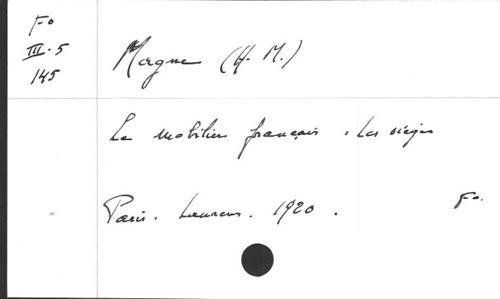 Fo
III. 5
145
Magne (H. M.)
Le mobilier français. Les sièges
Paris. Laurens. 1920.
Fo.